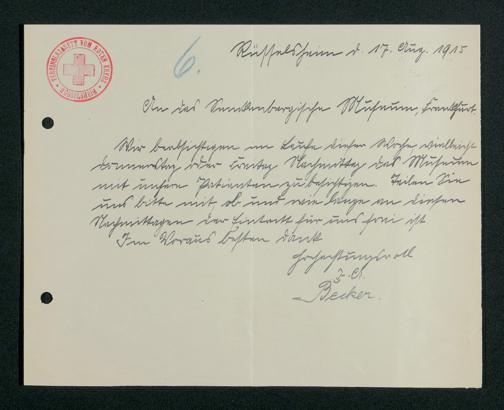 VEREINSLAZARETT VOM ROTEN KREUZ
6.
Rüsselsheim d. 17. Aug. 1915
An das Senckenbergische Museum, Frankfurt.
Wir beabsichtigen im Laufe dieser Woche vielleicht
donnerstag oder Freitag Nachmittag das Museum
mit unsern Patienten zu besichtigen. Teilen Sie
uns bitte mit ob und wie lange an diesen
Nachmittagen der Eintritt für uns frei ist
Im Voraus besten Dank
Hochachtungsvoll
Becker.